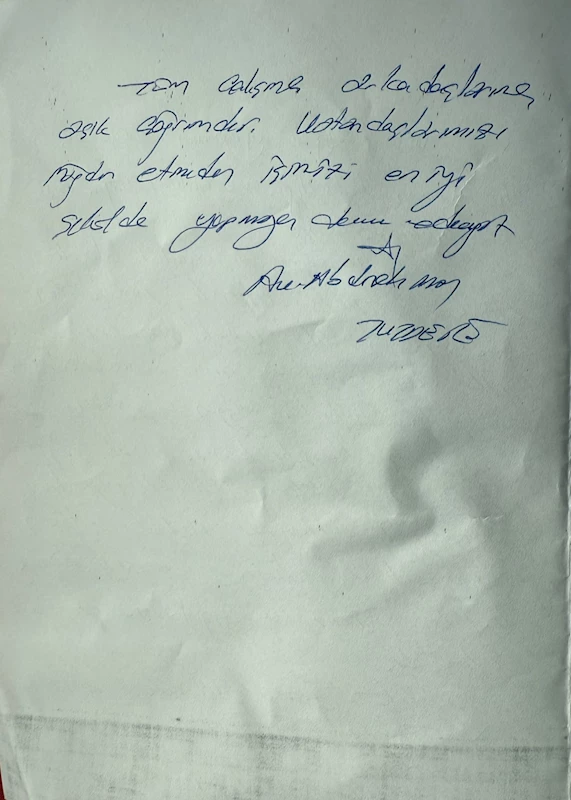 Tüm çalışma arkadaşlarıma
açık çağrımdır. Vatandaşlarımızı
mağdur etmeden işinizi en iyi
şekilde yapmaya devam
Av. Abdurrahman
TUTDERE